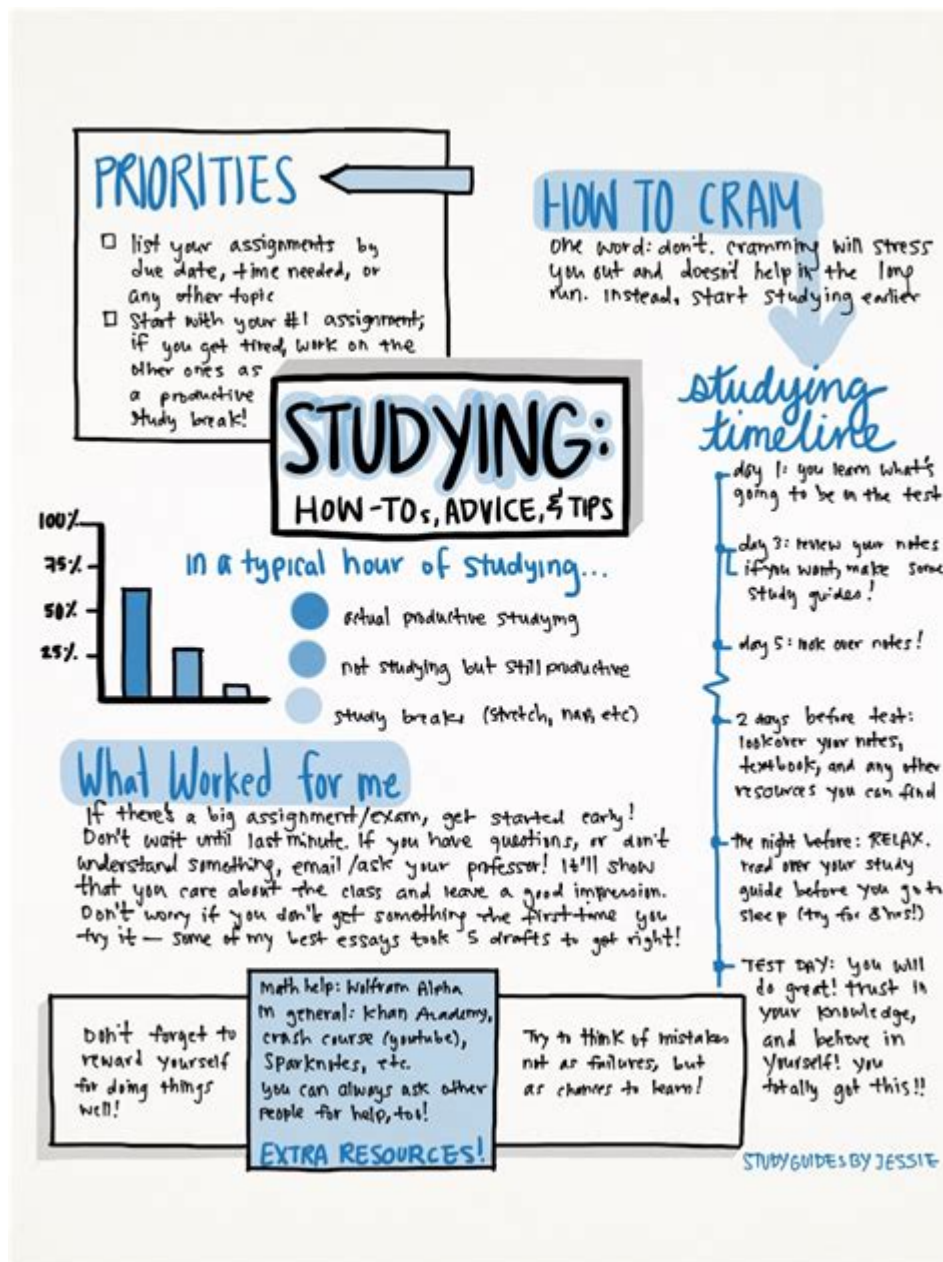 PRIORITIES
list your assignments by
due date, time needed, or
any other topic
Start with your #1 assignment;
if you get tired, work on the
other ones as
a productive
study break!
HOW TO CRAM
one word: don't. cramming will stress
you out and doesn't help in the long
run. instead, start studying earlier
STUDYING:
HOW-TOs, ADVICE, & TIPS
studying
timeline
day 1: you learn what's
going to be on the test
day 3: review your notes
if you want, make some
study guides!
day 5: look over notes!
2 days before test:
look over your notes,
textbook, and any other
resources you can find
the night before: RELAX.
read over your study
guide before you go to
sleep (try for 8 hrs!)
TEST DAY: you will
do great! trust in
your knowledge,
and believe in
yourself! you
totally got this!!
100%
75%
50%
25%
in a typical hour of studying...
actual productive studying
not studying but still productive
study breaks (stretch, nap, etc)
What Worked for me
If there's a big assignment/exam, get started early!
Don't wait until last minute. If you have questions, or don't
understand something, email/ask your professor! It'll show
that you care about the class and leave a good impression.
Don't worry if you don't get something the first time you
try it — some of my best essays took 5 drafts to get right!
Don't forget to
reward yourself
for doing things
well!
Math help: Wolfram Alpha
In general: Khan Academy,
crash course (youtube),
Sparknotes, etc.
you can always ask other
people for help, too!
EXTRA RESOURCES!
Try to think of mistakes
not as failures, but
as chances to learn!
STUDYGUIDESBYJESSIE